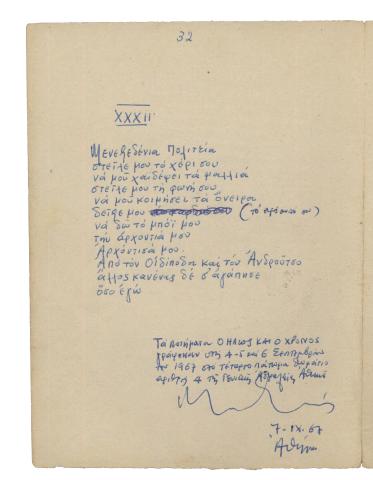 32
XXXII
Μενεξεδένια Πολιτεία
στεῖλε μου τὸ χέρι σου
νὰ μοῦ χαϊδέψει τὰ μαλλιά
στεῖλε μου τὴ φωνή σου
νὰ μοῦ κοιμήσει τὰ ὄνειρα
δεῖξε μου (τὸ πρόσωπό σου)
νὰ δῶ τὸ μπόϊ μου
τὴν ἀρχοντιά μου
Ἀρχόντισά μου.
Ἀπὸ τὸν Οἰδίποδα καὶ τὸν Ἀνδροῦτσο
ἄλλος κανένας δὲ σ' ἀγάπησε
ὅσο ἐγώ
Τὰ ποιήματα Ο ΗΛΙΟΣ ΚΑΙ Ο ΧΡΟΝΟΣ
γράφτηκαν στὶς 4-5 καὶ 6 Σεπτεμβρίου
τοῦ 1967 στὸ τέταρτο πάτωμα δωμάτιο
ἀριθμὸς 4 τῆς Γενικῆς Ἀσφαλείας Ἀθηνῶν
7-IX-67
Ἀθήνα